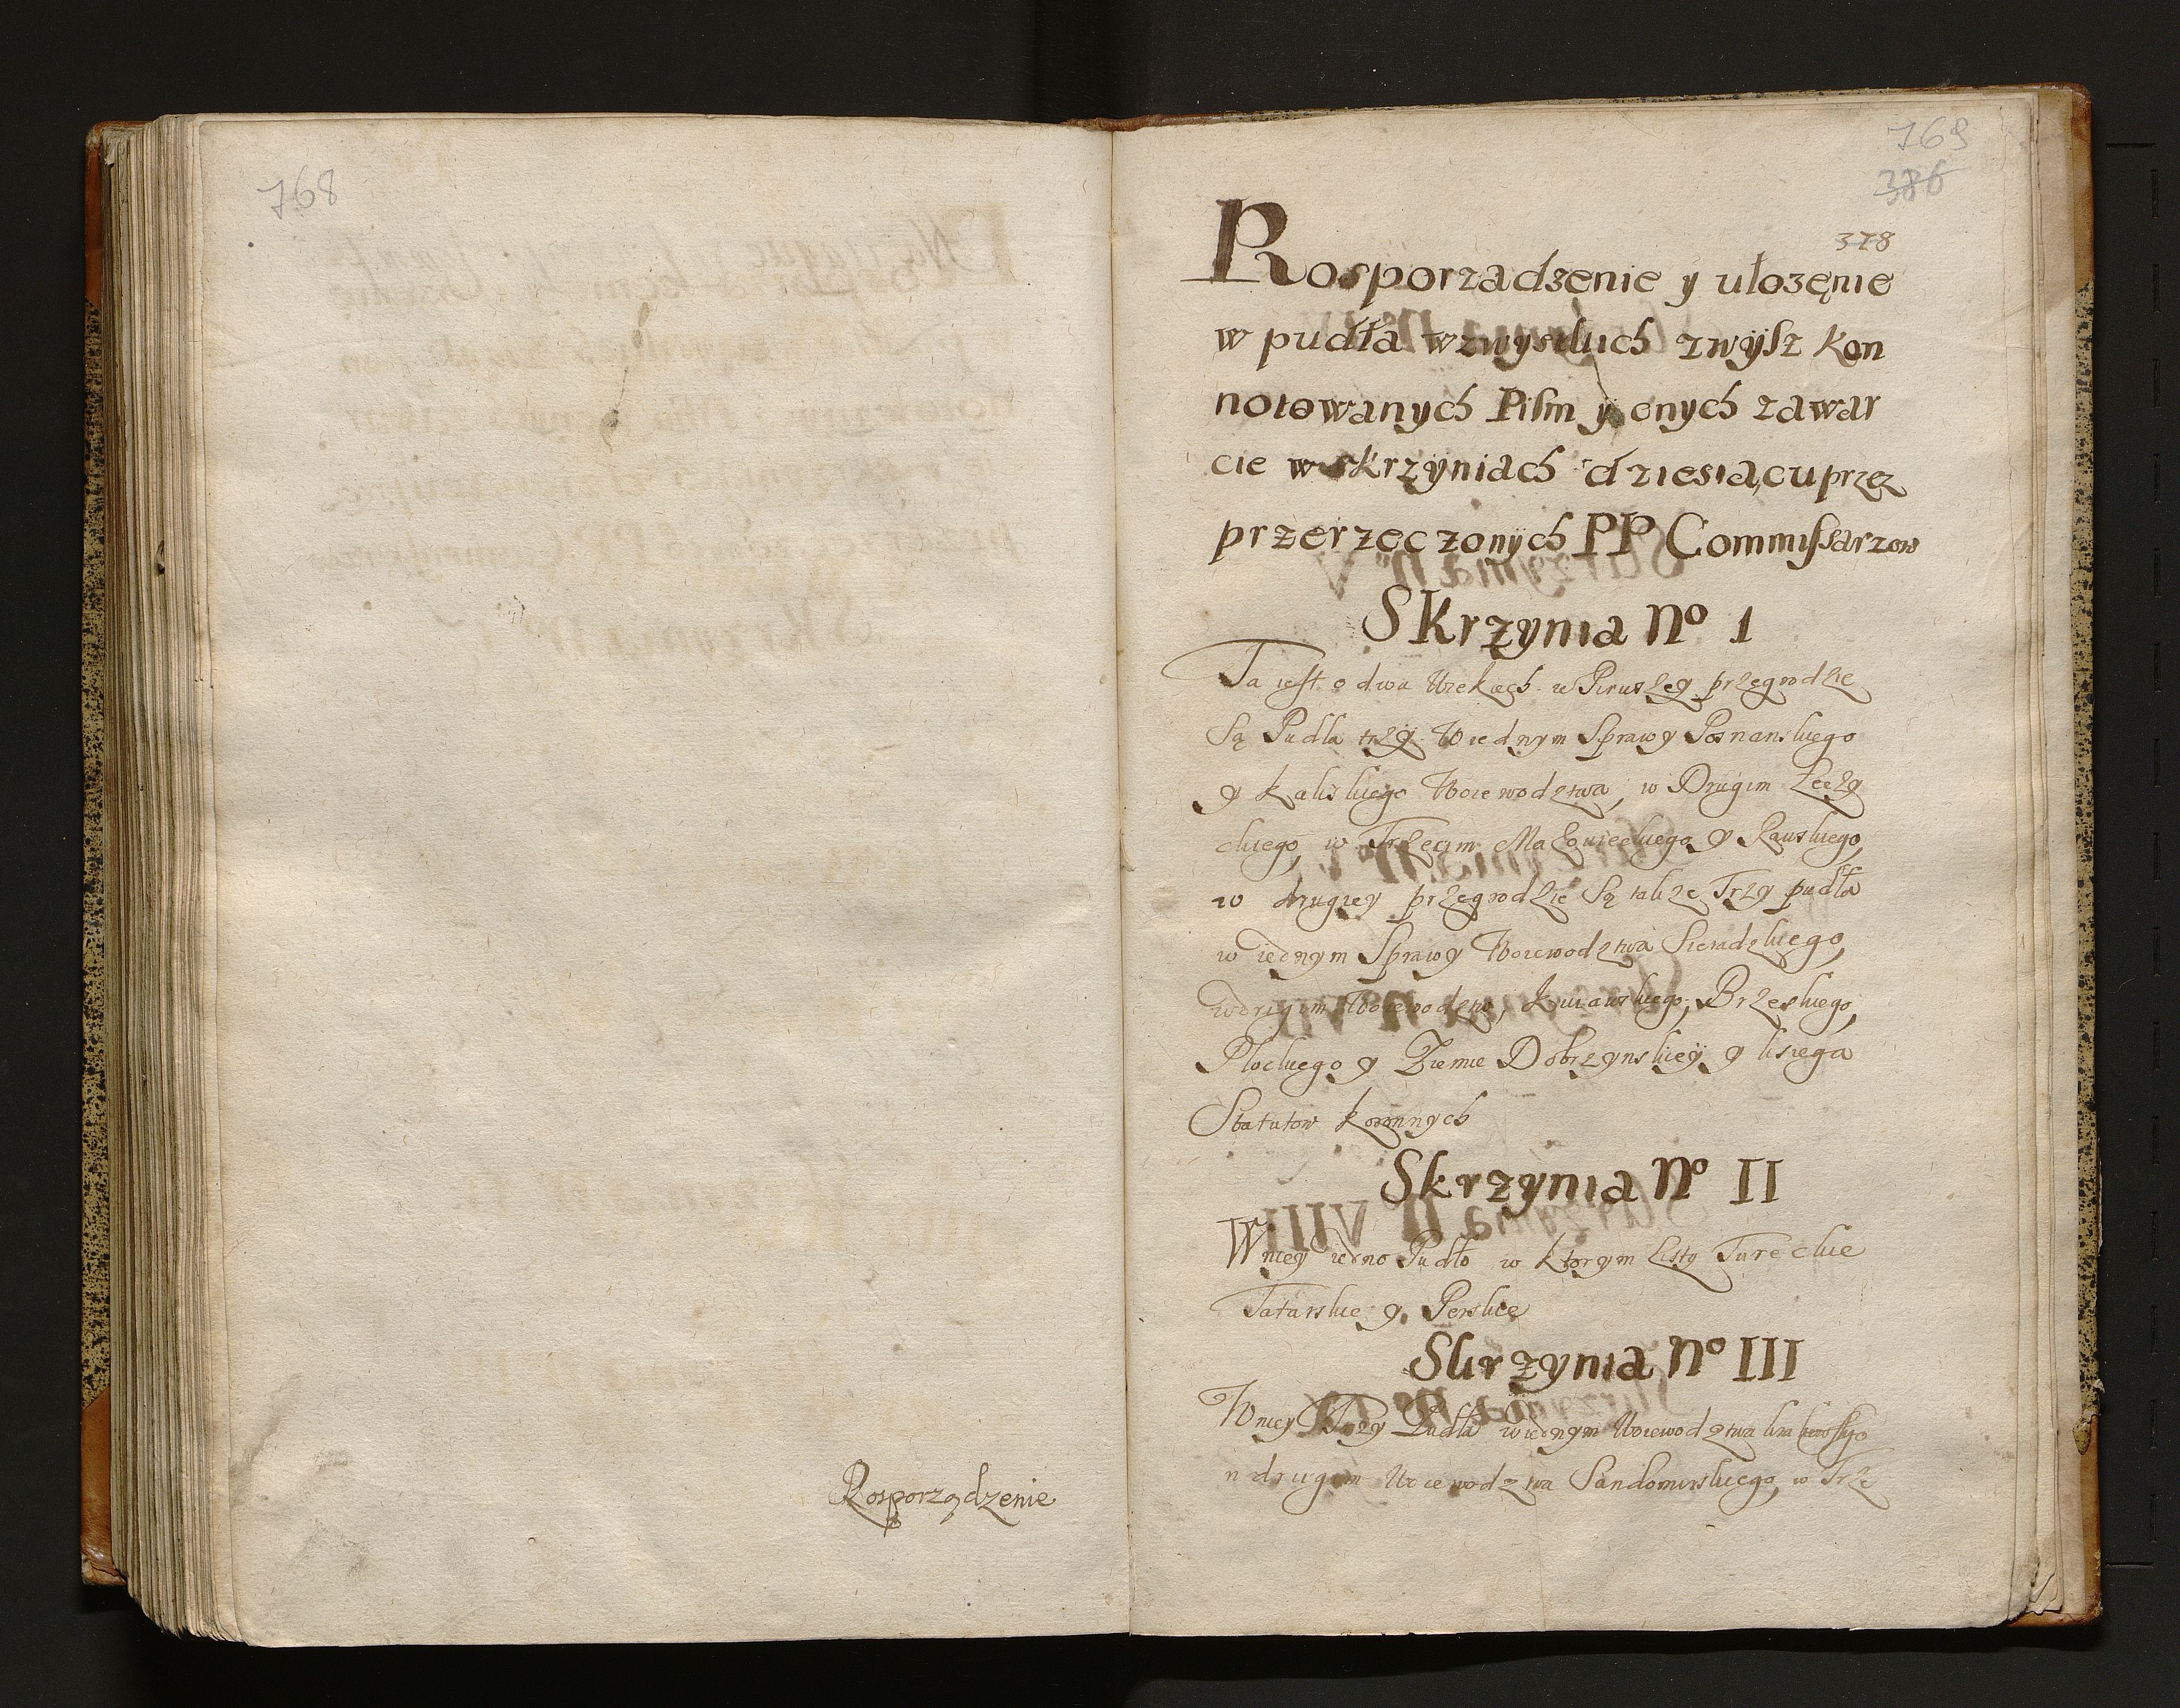 768
Rosporządzenie
769
386
378
Rosporządzenie y ułozęnie
w pudła wzwysтkich zwÿsz kon
notowanych Pism y onych zawar
cie w skrzyniach dziesiącu przez
przerzeczonych PP Commissarzow
Skrzynia No 1
Ta iest o dwu Wiekach w Pirwszey przegrodzie
Są Pudla trzÿ. W iednym Sprawy Posnanskiego
y Kaliskiego Woiewodztwa, w Drugim Łęczy
ckiego, w Trzecim Mazowieckiego y Rawskiego,
w drugiey przegrodzie Są takze Trzy pudła
w iednym Sprawy Woiewodztwa Sieradzkiego,
w drugim Woiewodztw, Kuiawskiego, Brzeskiego,
Plockiego y Ziemie Dobrzynskieÿ y ksiega
Statutow koronnych
Skrzynia No II
W niey iedno Pudło w ktorym Listy Tureckie
Tatarskie y Perskie
Skrzynia No III
W niey Trzy Pudła w iednym Woiewodztwa krakowskiego
w drugim Woiewodztwa Sandomirskiego, w Trze